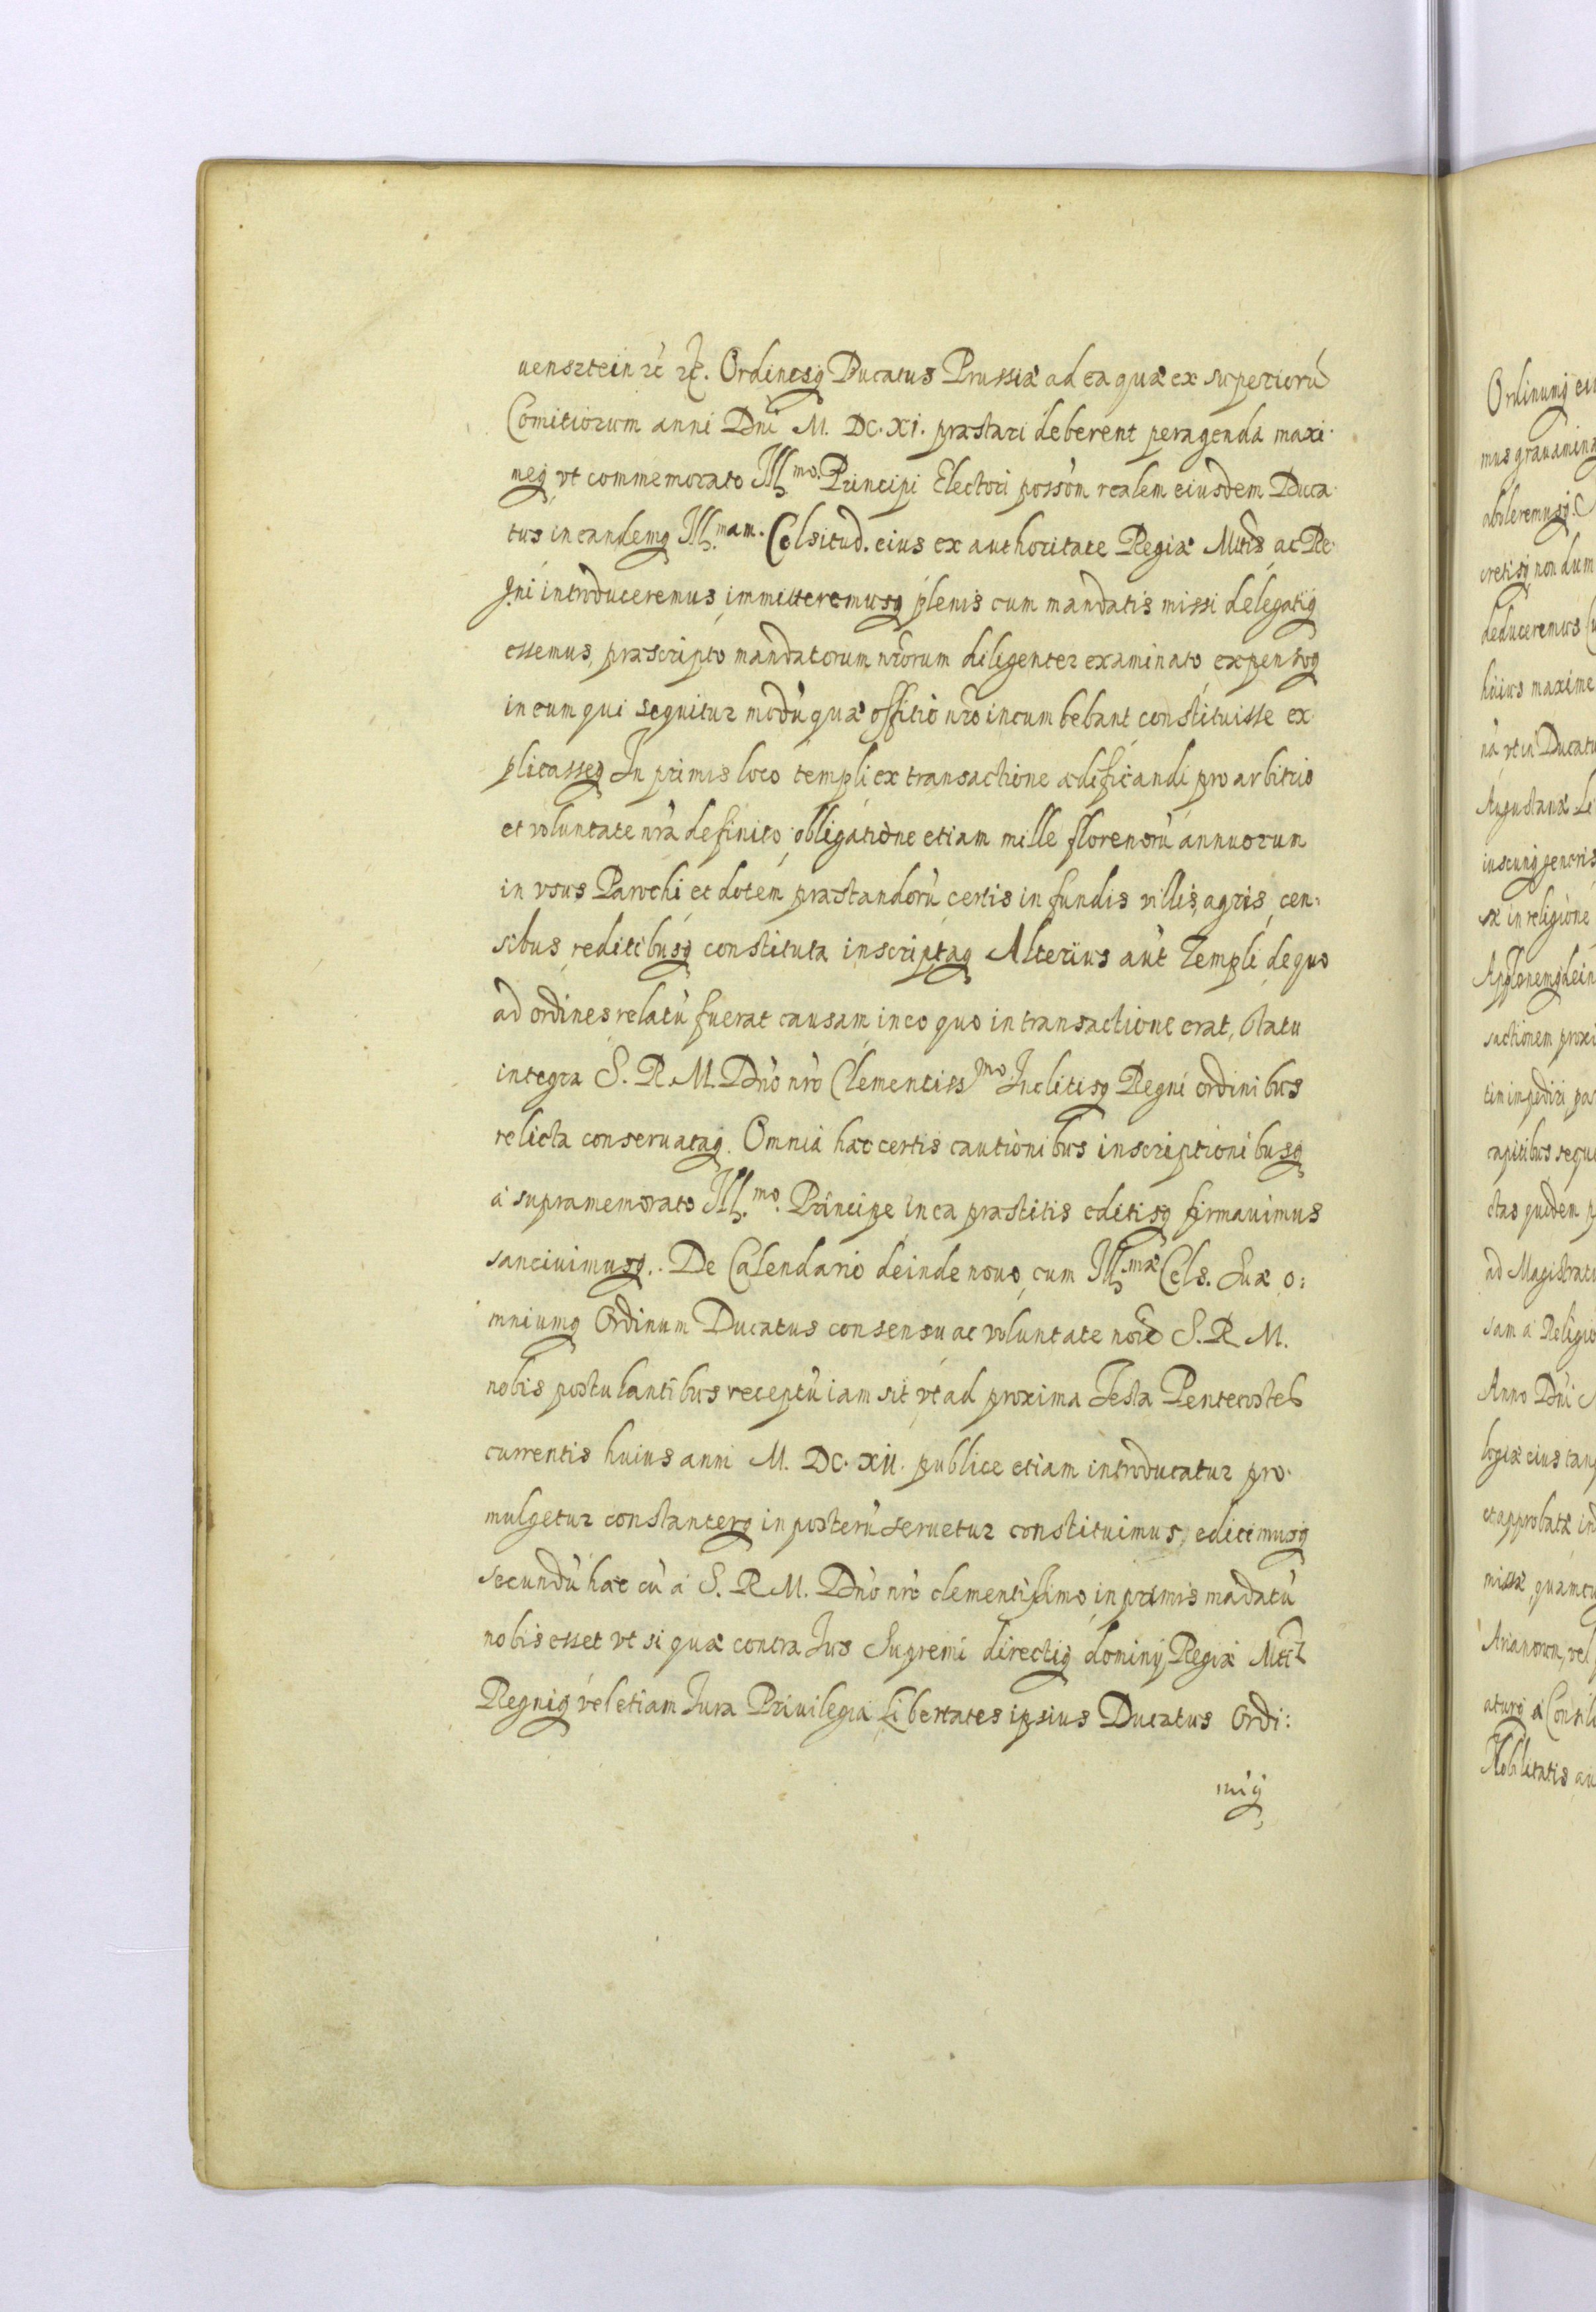 uensztein &c &c. Ordinesq́ Ducatus Prussiæ ad ea quæ ex superiorū
Comitiorum anni Dn̄i M. DC. XI. præstari deberent peragenda maxi-
meq́, vt commemorato Ill.mo. Principi Electori possōm realem eiusdem Duca-
tus in eandemq́ Ill.mam. Celsitud. eius ex authoritate Regiæ Mtis ac Re-
gni introduceremus, immitteremusq́ plenis cum mandatis missi delegatiq́
essemus, præscripto mandatorum nr̄orum diligenter examinato, expensoq́
in eum qui sequitur modū quæ offitio nr̄o incumbebant constituisse ex-
plicasseq́ In primis loco templi ex transactione ædificandi pro arbitrio
et voluntate nr̄a definito, obligatione etiam mille florenorū annuorum
in vsus Parochi et dotem præstandorū certis in fundis villis, agris, cen-
sibus, reditibusq́ constituta inscriptaq́ Alterius aut̄ Templi, de quo
ad ordines relatū fuerat causam, in eo quo in transactione erat, statu
integra S. R. M. Dn̄o nr̄o Clementissmo Inclitisq́ Regni ordinibus
relicta conseruataq́. Omnia hæc certis cautionibus inscriptionibusq́
á supramemorato Ill.mo. Principe in ea præstitis editisq́ firmauimus
sanciuimusq́. De Calendario deinde nouo, cum Ill.mæ Cels. Suæ o:
mniumq́ Ordinum Ducatus consensu ac voluntate S. R. M.
nobis postulantibus receptū iam sit, vt ad proxima Festa Pentecostes
currentis huius anni M. DC. XII. publice etiam introducatur pro-
mulgetur constanterq́ in posterū seruetur constituimus, edicimusq́
secundū hæc cū á S. R. M. Dn̄o nr̄o clementissimo, in primis mādatū
nobis esset vt si quæ contra Ius Supremi directiq́ dominij Regiæ Mtis
Regniq́ vel etiam Iura Priuilegia Libertates ipsius Ducatus Ordi:
niq́
Ordinumq́
mus grauamina
aboleremusq́.
cretisq́ non dum
deduceremus
huius maxime
nā vt in Ducatu
Augustanæ
iuscunq́ generis
sæ in religione
sactionem proxi
tim impediri
capitibus sequ
ctas quidem
ad Magistratu
sam á Religio
Anno Dn̄i
logiæ eius
et approbatæ
missæ, quamcu
Arianorum, vel
Nobilitatis